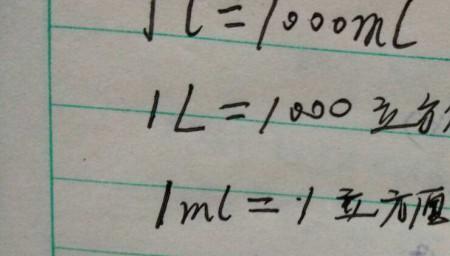 1l=1000ml
1L=1000立方
1ml=1立方厘